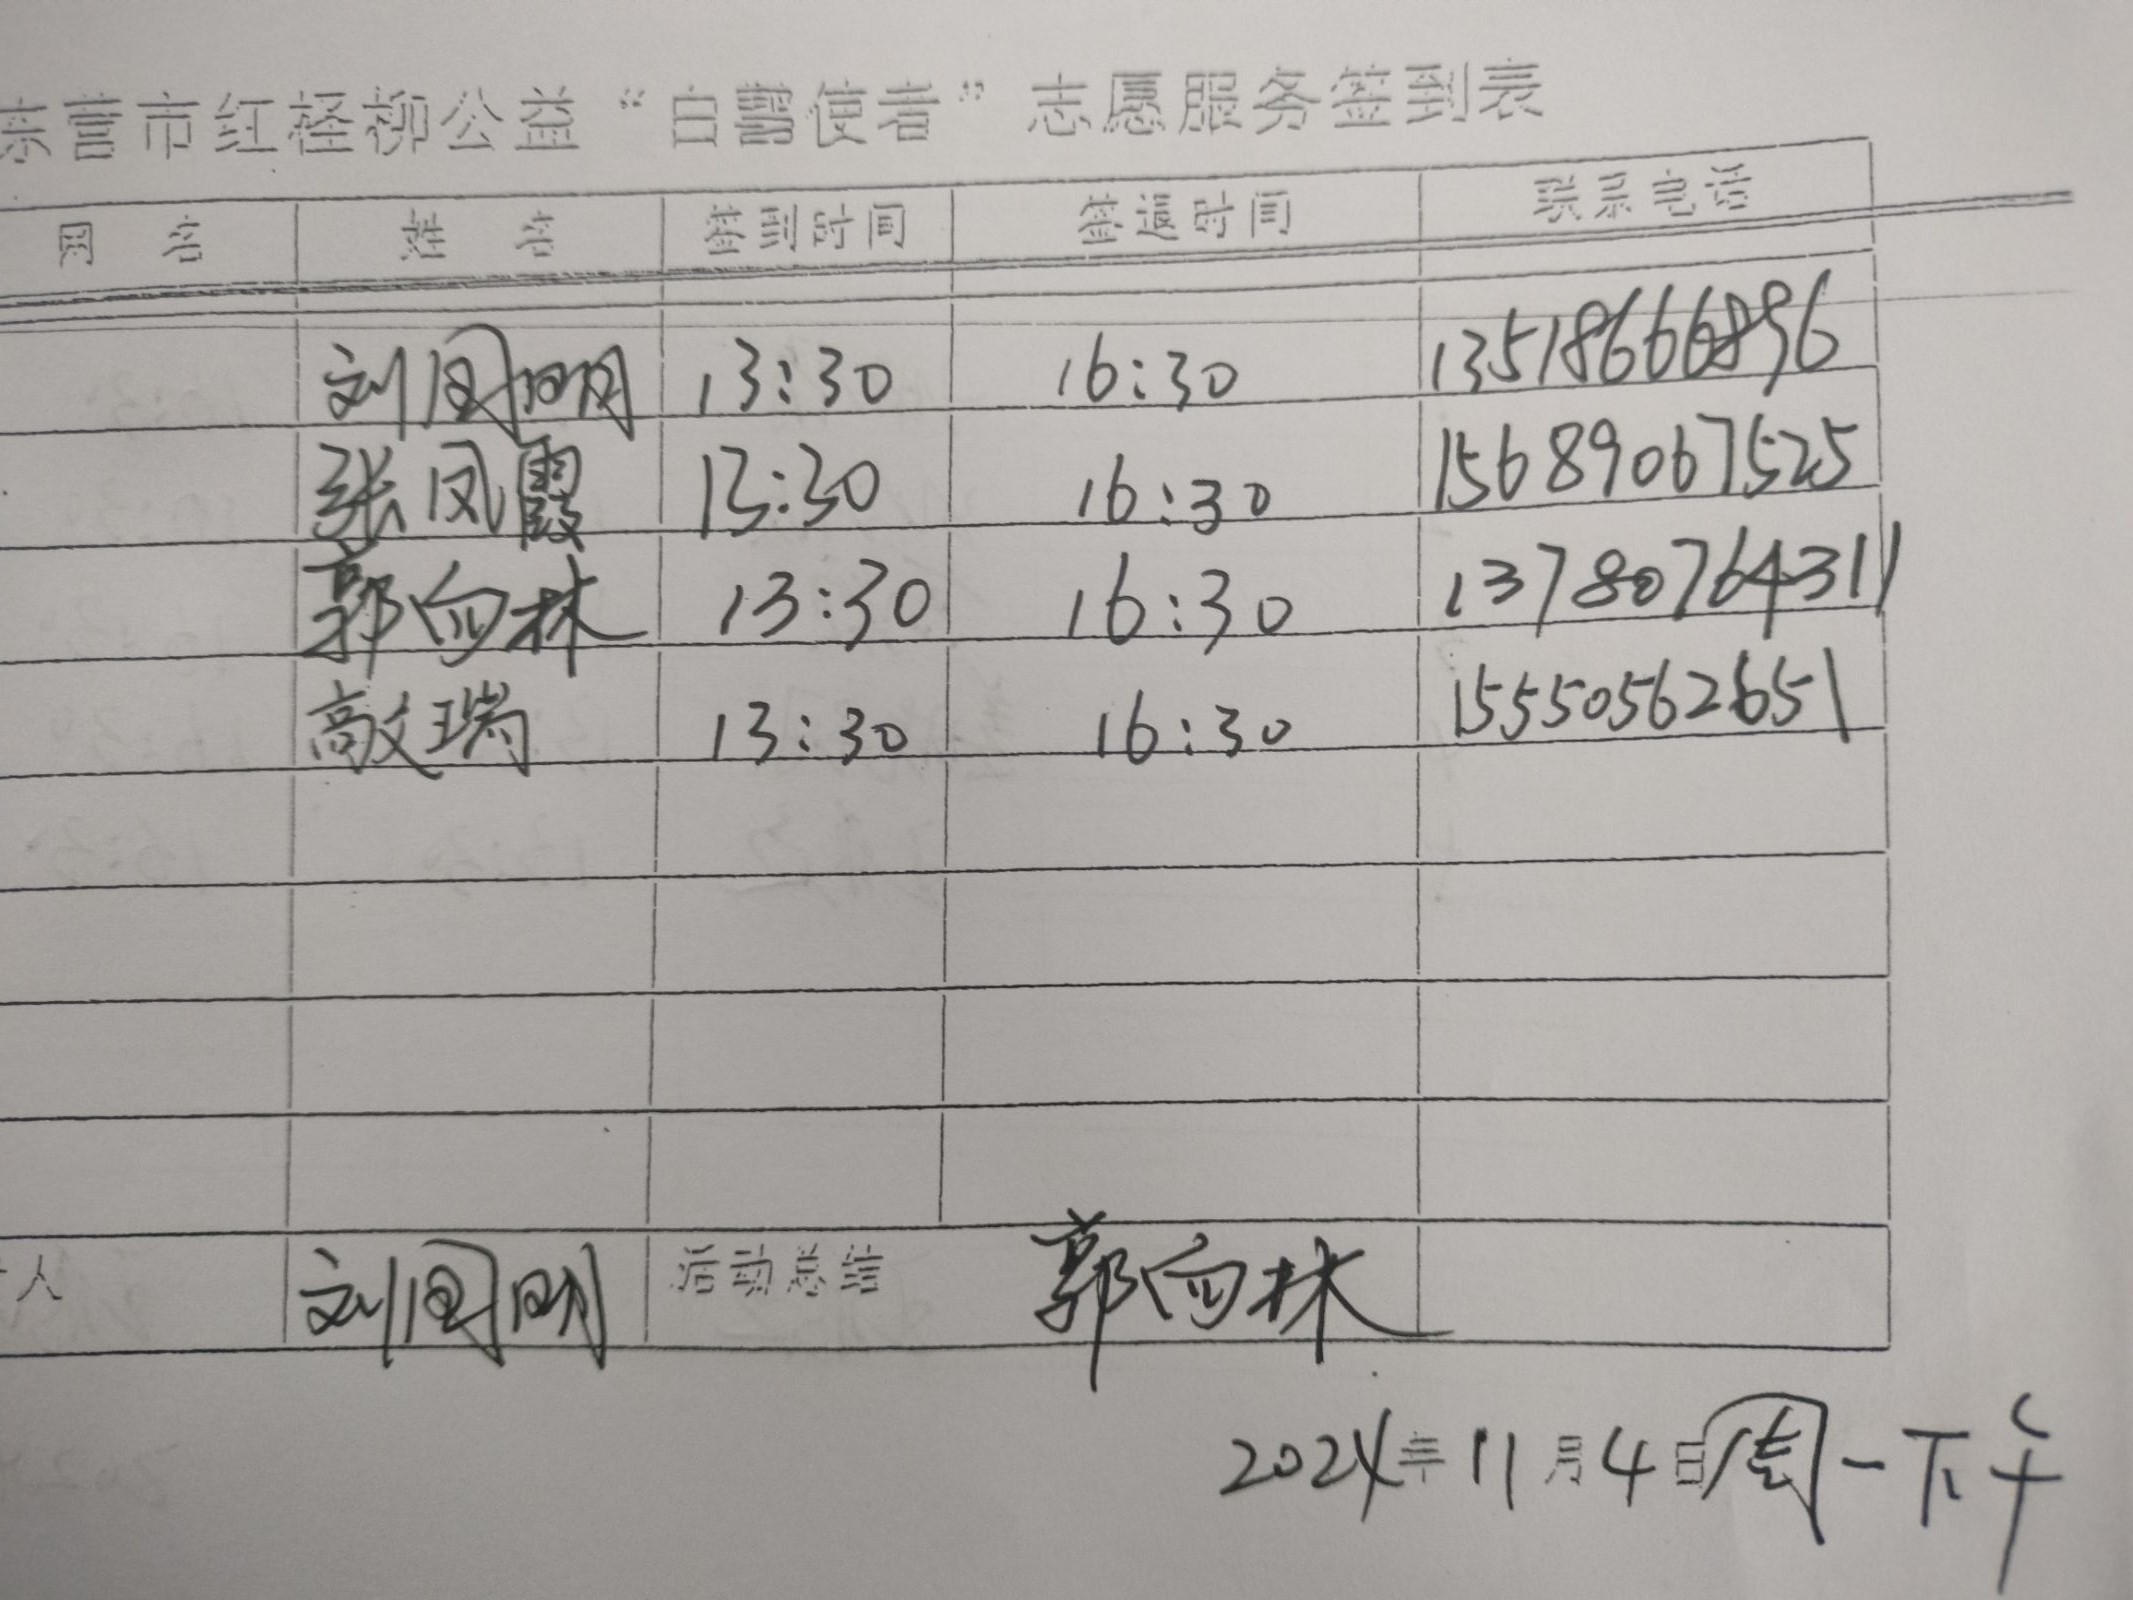 东营市红柽柳公益“白鹭使者”志愿服务签到表
网 名 姓 名 签到时间 签退时间 联系电话
刘国明 13:30 16:30 13518666896
张凤霞 13:30 16:30 15689067525
郭向林 13:30 16:30 13780764311
高文瑞 13:30 16:30 15550562651
人 刘国明 活动总结 郭向林
2024年11月4日周一下午